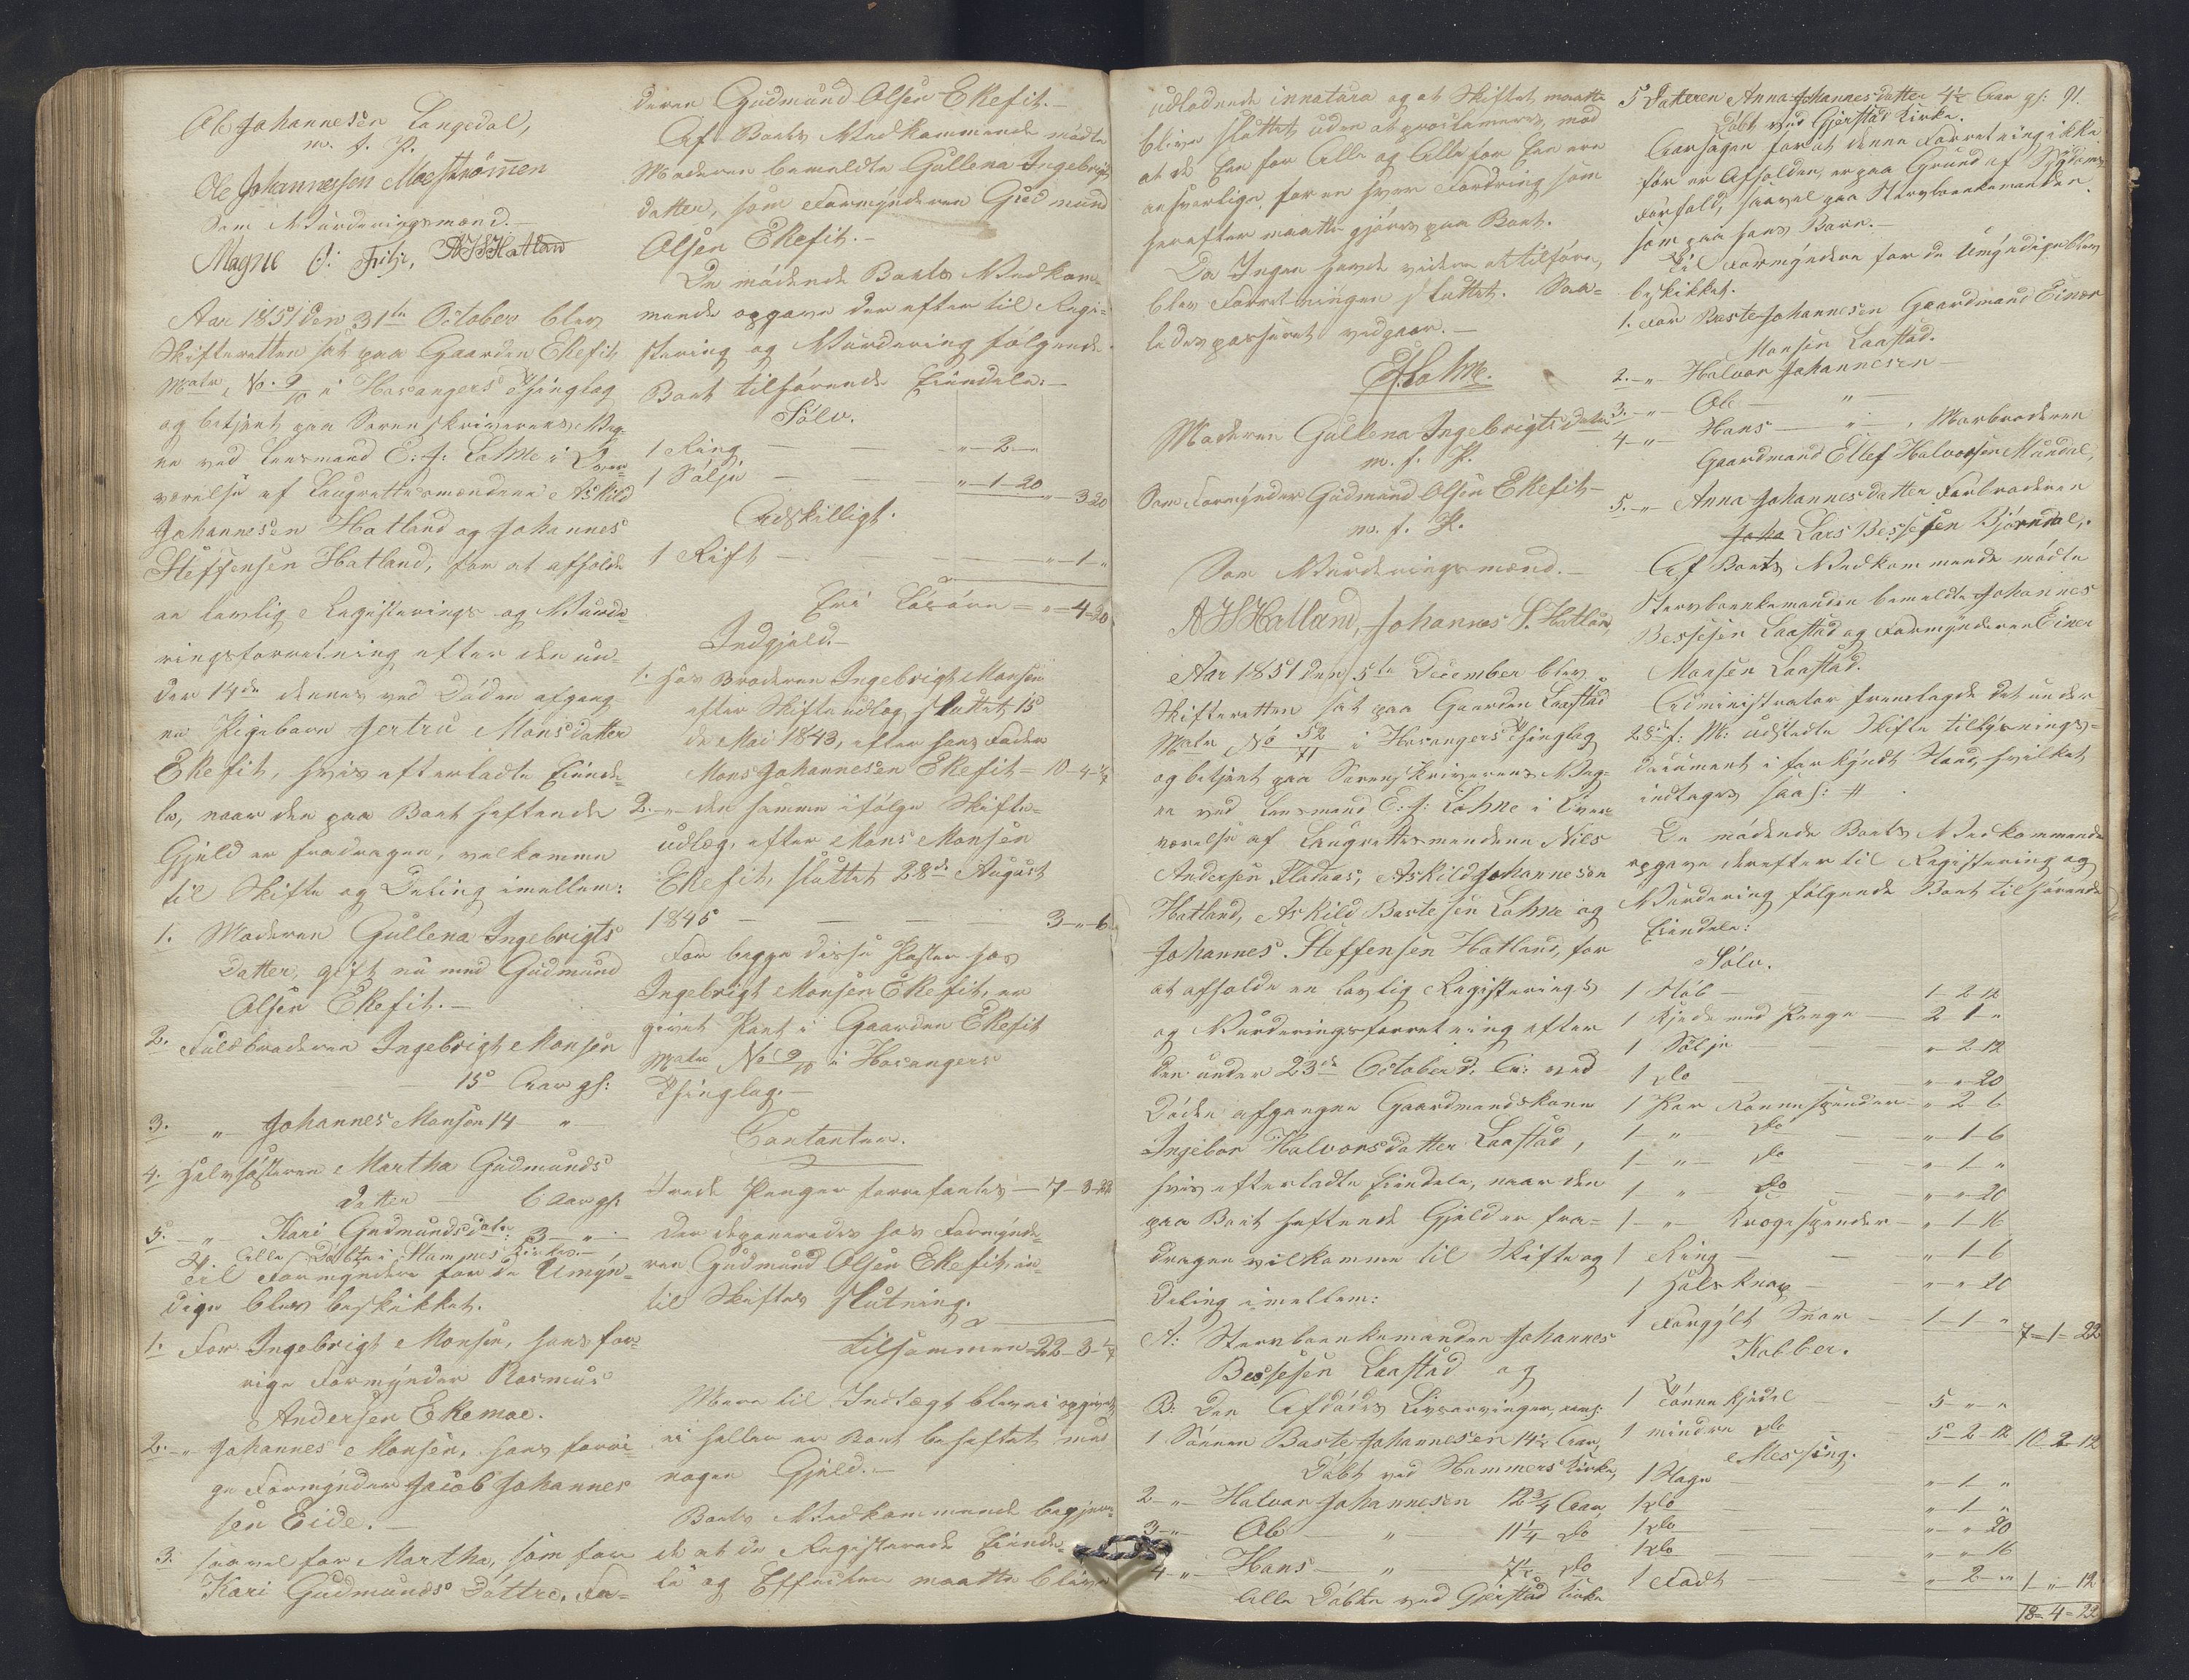 Ole Johannesen Langedal,
m. f. P.
Ole Johannessen Moestrømmen
Som Vurderingsmænd.-
Magne O: Fitje, AJSHatland
Aar 1851 den 31te October blev
Skifteretten sat paa Gaarden Ekefit
Matr. No. 9/10 i Hosangers Thinglag
og betjent paa Sorenskriverens Veg-
ne ved Lensmand E: J: Lohne i Over-
værelse af Laugrettesmændene Askild
Johannesen Hatland og Johannes
Steffensen Hatland, for at afholde
en lovlig Registerings og Vurde-
ringsforretning efter den un-
der 14de dennes ved Døden afgang-
ne Pigebarn Jertru Monsdatter
Ekefit, hvis efterladte Eiende-
le, naar den paa Boet heftende
Gjeld er fradragen, vilkomme
til Skifte og Deling imellem:
1. Moderen Gullena Ingebrigts
Datter, gift nu med Gudmund
Olsen Ekefit.-
2. Fuldbroderen Ingebrigt Monsen
15 Aar gl:
3. " Johannes Monsen 14 "
4. Halvsøsteren Martha Gudmunds
datter — 6 Aar gl:
5. " Kari Gudmundsdatr: 3 — " -
Alle Døbte i Stamnes Kirke.-
Til Formyndere for de Umyn-
dige blev beskikket.
1. For Ingebrigt Monsen, hans for-
rige Formynder Rasmus
Andersen Ekemoe.
2. - " Johannes Monsen, hans forri-
ge Formynder Jacob Johannes
sen Eide.-
3. saavel for Martha, som for
Kari Gudmunds Døttre, Fa-
deren Gudmund Olsen Ekefit.-
Af Boets Vedkommende mødte
Moderen bemeldte Gullena Ingebrigts
datter, som Formynderen Gudmund
Olsen Ekefit.-
De mødende Boets Vedkom-
mende opgave derefter til Regi-
stering og Vurdering følgende
Boet tilhørende Eiendele:-
Sølv.
1 Ring — " - 2 - "
1 Sølje — " - 1 - 20 " - 3 - 20
Adskilligt.
1 Rift — " - 1 - "
Eri Løsøre = " = 4 = 20
Indgjeld.-
1. Hos Broderen Ingebrigt Monsen
efter Skifteudlæg sluttet 15
de Mai 1843, efter hans Fader
Mons Johannesen Ekefit = 10 - 4 - 1/2
2. - " den samme ifølge Skifte-
udlæg, efter Mons Monsen
Ekefit, sluttet 28de August
1845 — 3 - " - 6
For begge disse Poster hos
Ingebrigt Monsen Ekefit, er
givet Pant i Gaarden Ekefit
Matr No 9/10 i Hosangers
Thinglag.-
Contanter.
Trede Penger forefantes — 7 - 3 - 22
der deponeredes hos Formynde-
ren Gudmund Olsen Ekefit, in-
til Skiftes Slutning.
tilsammen = 22 - 3 - 1/2
Mere til Indtægt blev ei opgivet,
ei heller er Boet beheftet med
nogen Gjeld.-
Boets Vedkommende begjer-
te at de Registerede Eiende-
le og Effecter maatte blive
udlodnede innatura og at Skiftet maatte
blive sluttet uden at proclameres, mod
at de Een for Alle og Alle for Een ere
ansvarlige for en hver Fordring som
herefter maatte gjøres paa Boet.
Da Ingen havde videre at tilføre,
blev Forretningen sluttet. Saa-
ledes passeret vidgaar.-
EJLohne.
Moderen Gullena Ingebrigtsdatter
m. f. P.
Som Formynder Gudmund Olsen Ekefit-
m. f. P.
Som Vurderingsmænd.-
AJSHatland, Johannes S. Hatland,
Aar 1851 den 5te December blev
Skifteretten sat paa Gaarden Laastad
Matr No 52/71 i Hosangers Thinglag
og betjent paa Sorenskriverens Veg-
ne ved Lensmand E: J: Lohne i Over-
værelse af Laugrettesmændene Nils
Andersen Fladaas, Askild Johannesen
Hatland, Askild Bastesen Lohne og
Johannes Steffensen Hatland, for
at afholde en lovlig Registerings
og Vurderingsforretning efter
den under 23de October d: A: ved
Døden afgangne Gaardmandskone
Ingebor Halvorsdatter Laastad,
hvis efterladte Eiendele, naar den
paa Boet heftende Gjeld er fra-
dragen vilkomme til Skifte og
Deling imellem:
A: Stervboenkemanden Johannes
Bessesen Laastad og
B: Den Afdødes Livsarvinger, neml:
1 Sønnen Baste Johannesen 14 1/2 Aar,
Døbt ved Hammers Kirke,
2 - " - Halvor Johannesen 12 3/4 Aar,
3 - " - Ole — " — 11 1/4 Do
4 - " - Hans — " — 7 1/2 Do
Alle Døbte ved Gjerstad Kirke
5 Datteren Anna Johannesdatter 4 1/2 Aar gl: 91.
Døbt ved Gjerstad Kirke.
Aarsagen for at denne Forretning ikke
før er Afholden, er paa Grund af Sygdoms
Forfald, saavel paa Stervboenkemanden
som paa hans Børn.-
Til Formyndere for de Umyndige blev
beskikket.
1. For Baste Johannesen Gaardmand Einar
Monsen Laastad.
2. - " - Halvor Johannesen —
3. - " - Ole — " —
4 - " - Hans — " — , Morbroderen
Gaardmand Ellef Halvorsen Mundal,
5. - " - Anna Johannesdatter Farbroderen
Joha Lars Bessesen Bjørndal,.
Af Boets Vedkommende mødte
Stervboenkemanden bemeldte Johannes
Bessesen Laastad og Formynderen Einer
Monsen Laastad.
Administrator fremlagde det under
28de f: M: udstedte Skifte tillysnings-
document i forkyndt Stand, hvilket
indtages saal: #
De mødende Boets Vedkommende
opgave derefter til Registering og
Vurdering følgende Boet tilhørende
Eiendele:
Sølv.
1 Støb — 1 - 2 - 12
1 Kjede med Penge — 2 - 1 - "
1 Sølje — " - 2 - 12
1 Do — " - " - 20
1 Par Konnespender — " - 2 - 6
1 - " - Do — " - 1 - 6
1 - " - Do — " - 1 - "
1 - " - Do — " - " - 20
1 - " - Krogespender — " - 1 - 16
1 Ring — " - 1 - 6
1 Halsknap — " - " - 20
1 Forgylt Snor — 1 - 1 - " 7 = 1 = 22
Kobber.
1 Tønne kjedel — 5 - " - "
1 mindre Do — 5 - 2 - 12 10 - 2 - 12
Messing.
1 Stage — " - 1 - "
1 Do — " - 1 - "
1 Do — " - " - 20
1 Do — " - " - 16
1 Fadt — " - 2 - " 1 - " - 12
18 = 4 = 22